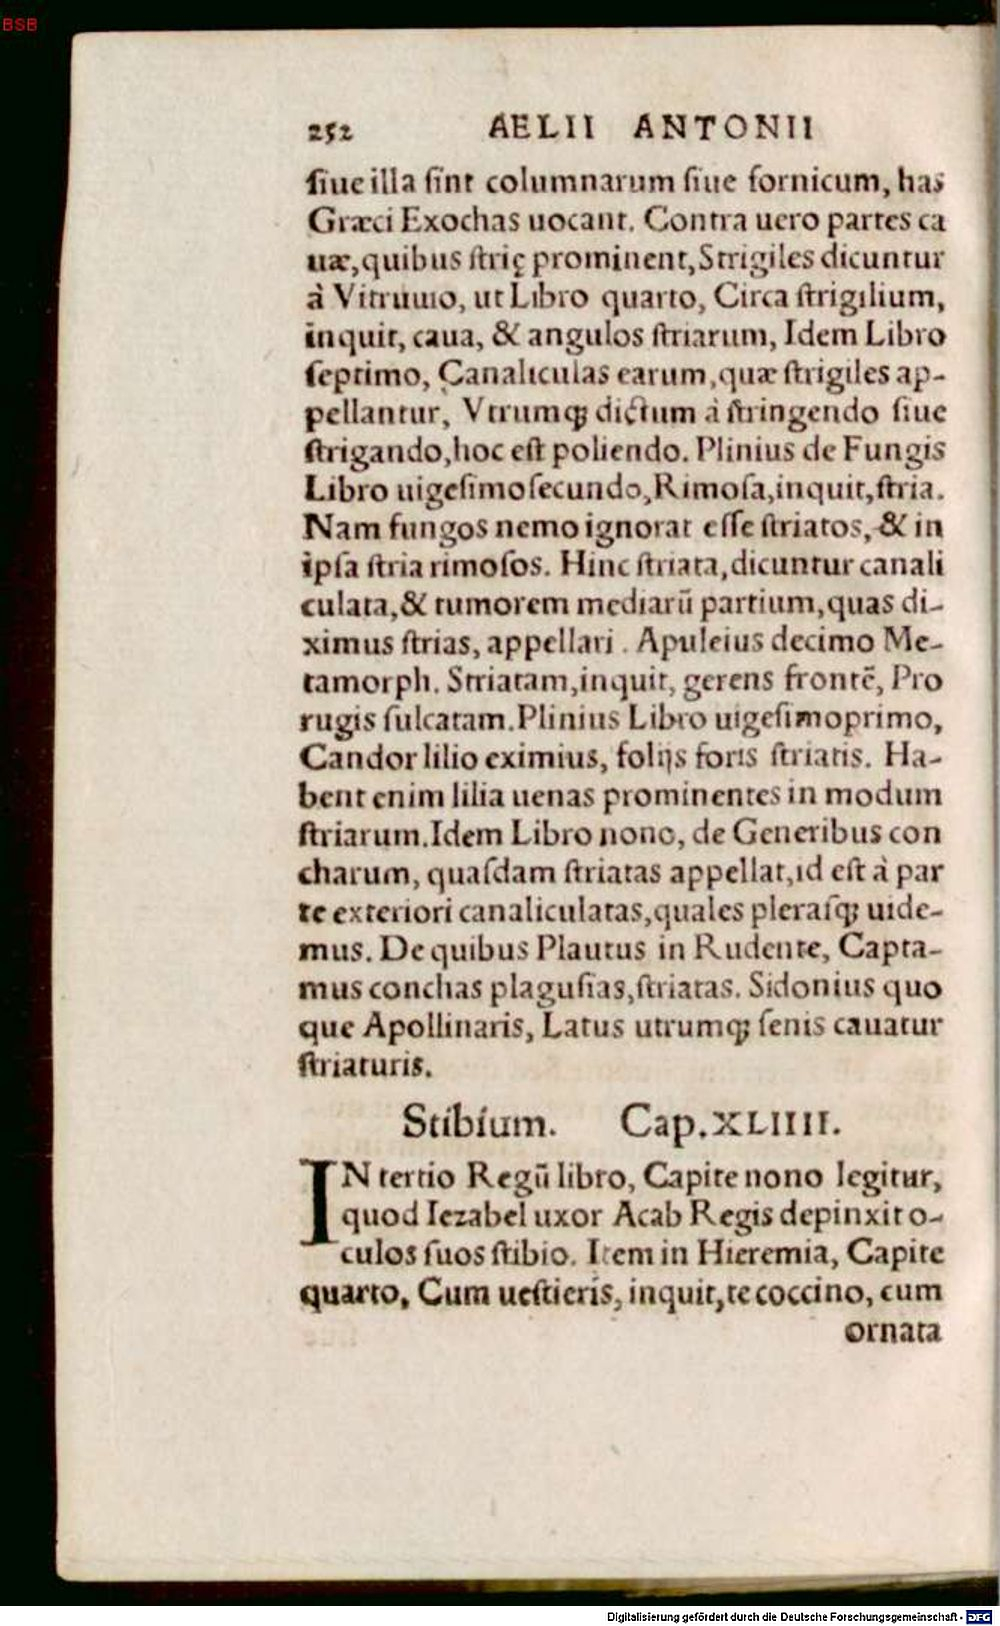 BSB
252 AELII ANTONII
ſiue illa ſint columnarum ſiue fornicum, has
Græci Exochas uocant. Contra uero partes ca
uæ, quibus ſtrię prominent, Strigiles dicuntur
à Vitruuio, ut Libro quarto, Circa ſtrigilium,
inquit, caua, & angulos ſtriarum, Idem Libro
ſeptimo, Canaliculas earum, quæ ſtrigiles ap-
pellantur, Vtrumq; dictum à ſtringendo ſiue
ſtrigando, hoc eſt poliendo. Plinius de Fungis
Libro uigeſimoſecundo, Rimoſa, inquit, ſtria.
Nam fungos nemo ignorat eſſe ſtriatos, & in
ipſa ſtria rimoſos. Hinc ſtriata, dicuntur canali
culata, & tumorem mediarū partium, quas di-
ximus ſtrias, appellari. Apuleius decimo Me-
tamorph. Striatam, inquit, gerens frontē, Pro
rugis ſulcatam. Plinius Libro uigeſimoprimo,
Candor lilio eximius, folijs foris ſtriatis. Ha-
bent enim lilia uenas prominentes in modum
ſtriarum. Idem Libro nono, de Generibus con
charum, quaſdam ſtriatas appellat, id eſt à par
te exteriori canaliculatas, quales pleraſq; uide-
mus. De quibus Plautus in Rudente, Capta-
mus conchas plaguſias, ſtriatas. Sidonius quo
que Apollinaris, Latus utrumq; ſenis cauatur
ſtriaturis.
Stibium. Cap. XLIIII.
IN tertio Regū libro, Capite nono legitur,
quod Iezabel uxor Acab Regis depinxit o-
culos ſuos ſtibio. Item in Hieremia, Capite
quarto, Cum ueſtieris, inquit, te coccino, cum
ornata
Digitalisierung gefördert durch die Deutsche Forschungsgemeinschaft - DFG